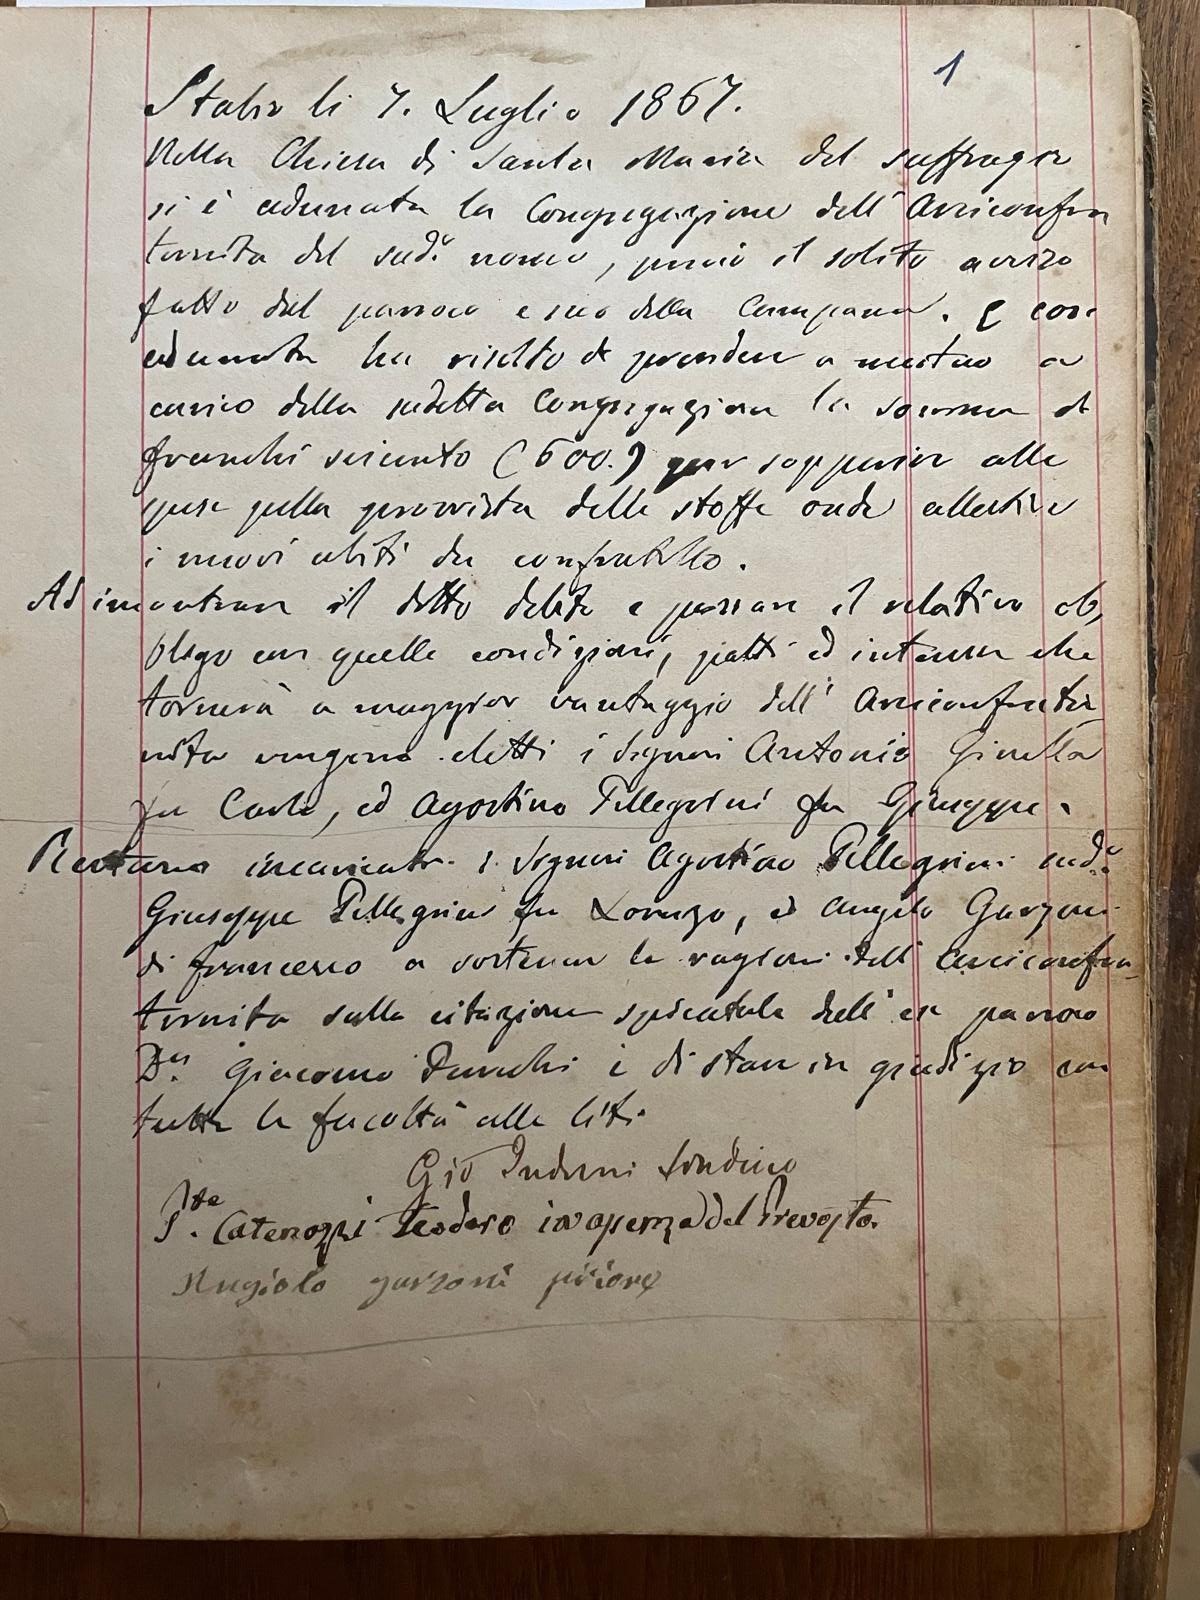 1
Stabio li 7. Luglio 1867.
Nella Chiesa di Santa Maria del suffragio
si è adunata la Congregazione dell' Arciconfra
ternita del sud.º nome, previo il solito avviso
fatto dal parroco e suo della Campana. E così
adunata ha risolto di prendere a mutuo a
carico della sudetta Congregazione la somma di
franchi seicento (600.) per sopperire alle
spese pella provvista delle stoffe onde allestire
i nuovi abiti da confratello.
Ad incontrare il detto debito e passare il relativo ob,
bligo con quelle condizioni, patti ed interesse che
tornerà a maggior vantaggio dell' Arciconfrater
nita vengono eletti i Signori Antonio Ginella
fu Carlo, ed Agostino Pellegrini fu Giuseppe.
Restano incaricati i Signori Agostino Pellegrini sud.º
Giuseppe Pellegrini fu Lorenzo, ed Angelo Garzoni
di francesco a sostenere le ragioni dell' Arciconfra-
ternita sulla citazione spiccatale dell' ex parroco
D.n Giacomo e di stare in giudizio con
tutte le facoltà alle liti.
Gio Induni Sindaco
P.te Catenazzi Teodoro in asenza del Prevosto.
Angiolo garzoni priore